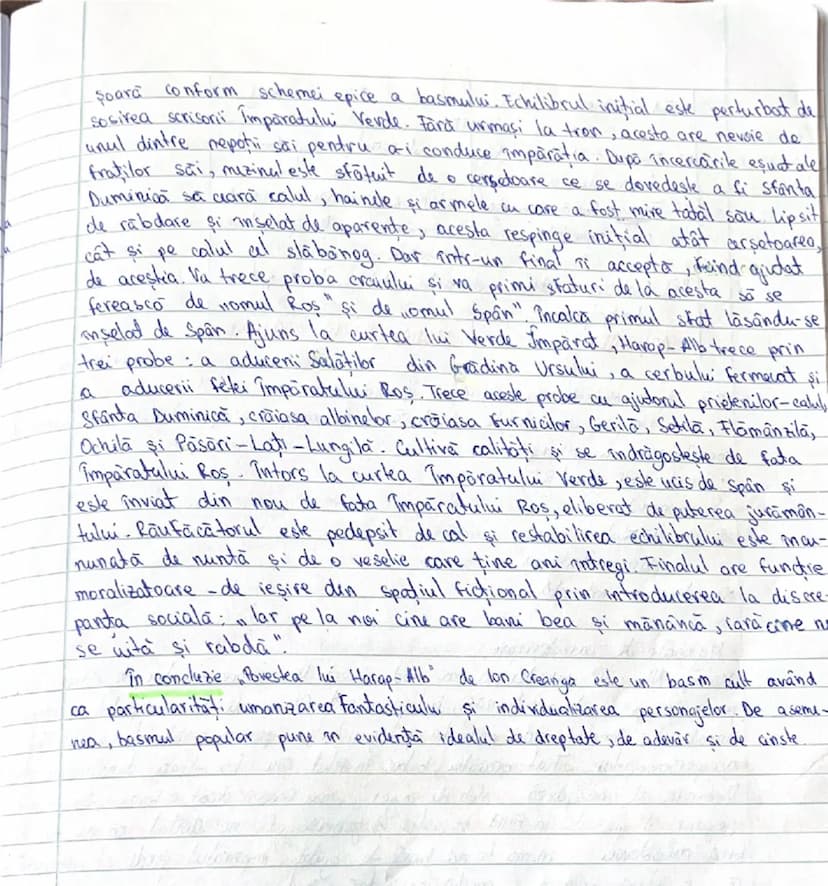 șoară conform schemei epice a basmului. Echilibrul inițial este perturbat de
sosirea scrisorii Împăratului Verde. Fără urmași la tron, acesta are nevoie de
unul dintre nepoții săi pentru a-i conduce împărăția. După încercările eșuate ale
fraților săi, mezinul este sfătuit de o cerșetoare ce se dovedește a fi sfânta
Duminică să ceară calul, hainele și armele cu care a fost mire tatăl său. Lipsit
de răbdare și înșelat de aparențe, acesta respinge inițial atât cerșetoarea,
cât și pe calul cel slăbănog. Dar într-un final îi acceptă, fiind ajutat
de aceștia. Va trece proba craiului și va primi sfaturi de la acesta să se
ferească de „omul Roș" și de „omul Spân". Încalcă primul sfat lăsându-se
înșelat de Spân. Ajuns la curtea lui Verde Împărat, Harap-Alb trece prin
trei probe: a aducerii Salăților din Grădina Ursului, a cerbului fermecat și
a aducerii fetei Împăratului Roș. Trece aceste probe cu ajutorul prietenilor-calul,
Sfânta Duminică, crăiasa albinelor, crăiasa furnicilor, Gerilă, Setilă, Flămânzilă,
Ochilă și Păsări-Lați-Lungilă. Cultivă calități și se îndrăgostește de fata
Împăratului Roș. Întors la curtea Împăratului Verde, este ucis de Spân și
este înviat din nou de fata Împăratului Roș, eliberat de puterea jurămân-
tului. Răufăcătorul este pedepsit de cal și restabilirea echilibrului este încu-
nunată de nuntă și de o veselie care ține ani întregi. Finalul are funcție
moralizatoare - de ieșire din spațiul ficțional prin introducerea la discre-
panța socială: „Iar pe la noi cine are bani bea și mănâncă, iară cine n
se uită și rabdă".
În concluzie „Povestea lui Harap-Alb" de Ion Creangă este un basm cult având
ca particularități umanizarea Fantasticului și individualizarea personajelor. De aseme-
nea, basmul popular pune în evidență idealul de dreptate, de adevăr și de cinste